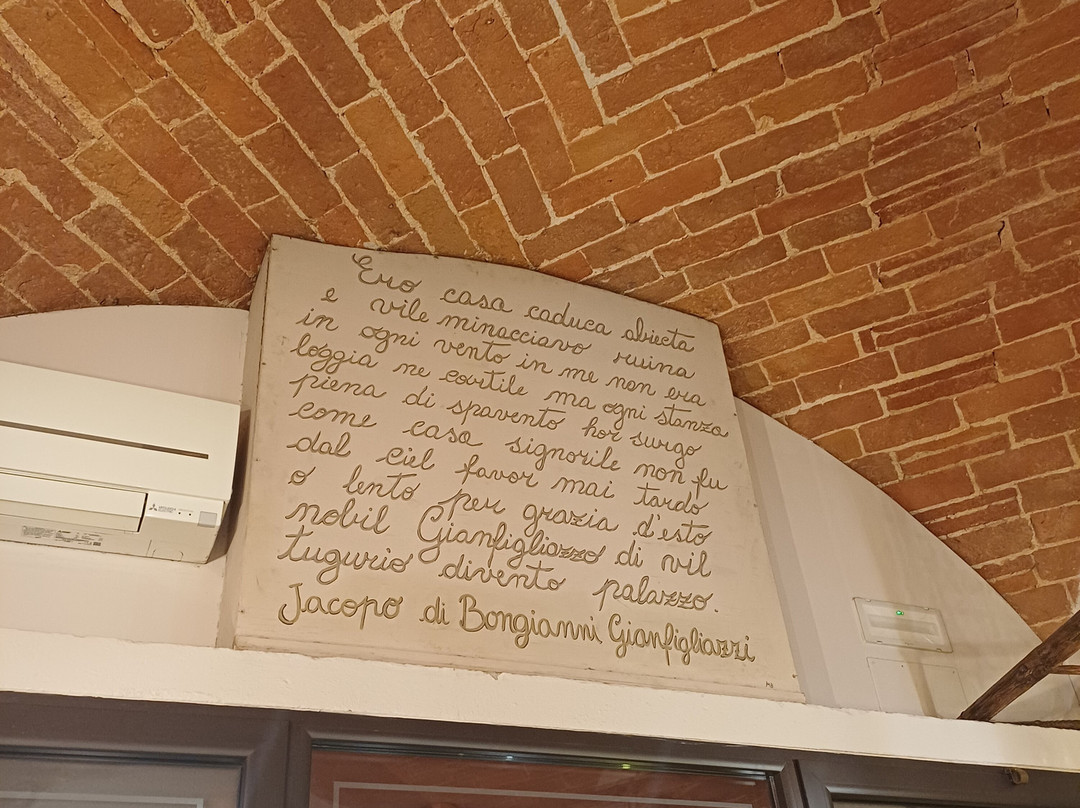 Ero casa caduca abiecta
e vile minacciavo ruina
in ogni vento in me non era
loggia ne cortile ma ogni stanza
piena di spavento hor surgo
come casa signorile non fu
dal ciel favor mai tardo
o lento per grazia d'esto
nobil Gianfigliazzo di vil
tugurio divento palazzo.
Jacopo di Bongianni Gianfigliazzi